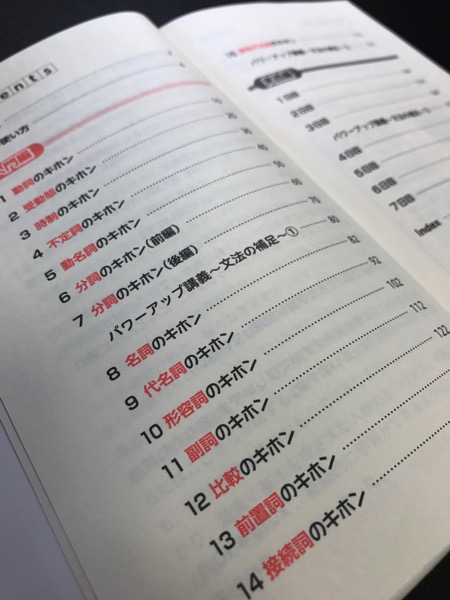 ents
使い方
1 動詞のキホン 10
2 受動態のキホン 20
3 時制のキホン 30
4 不定詞のキホン 40
5 動名詞のキホン 50
6 分詞のキホン(前編) 60
7 分詞のキホン(後編) 70
パワーアップ講義～文法の補足～① 80
8 名詞のキホン 82
9 代名詞のキホン 92
10 形容詞のキホン 102
11 副詞のキホン 112
12 比較のキホン 122
13 前置詞のキホン
14 接続詞のキホン
パワーアップ講義
1日目
2日目
3日目
パワーアップ講義
4日目
5日目
6日目
7日目
Index